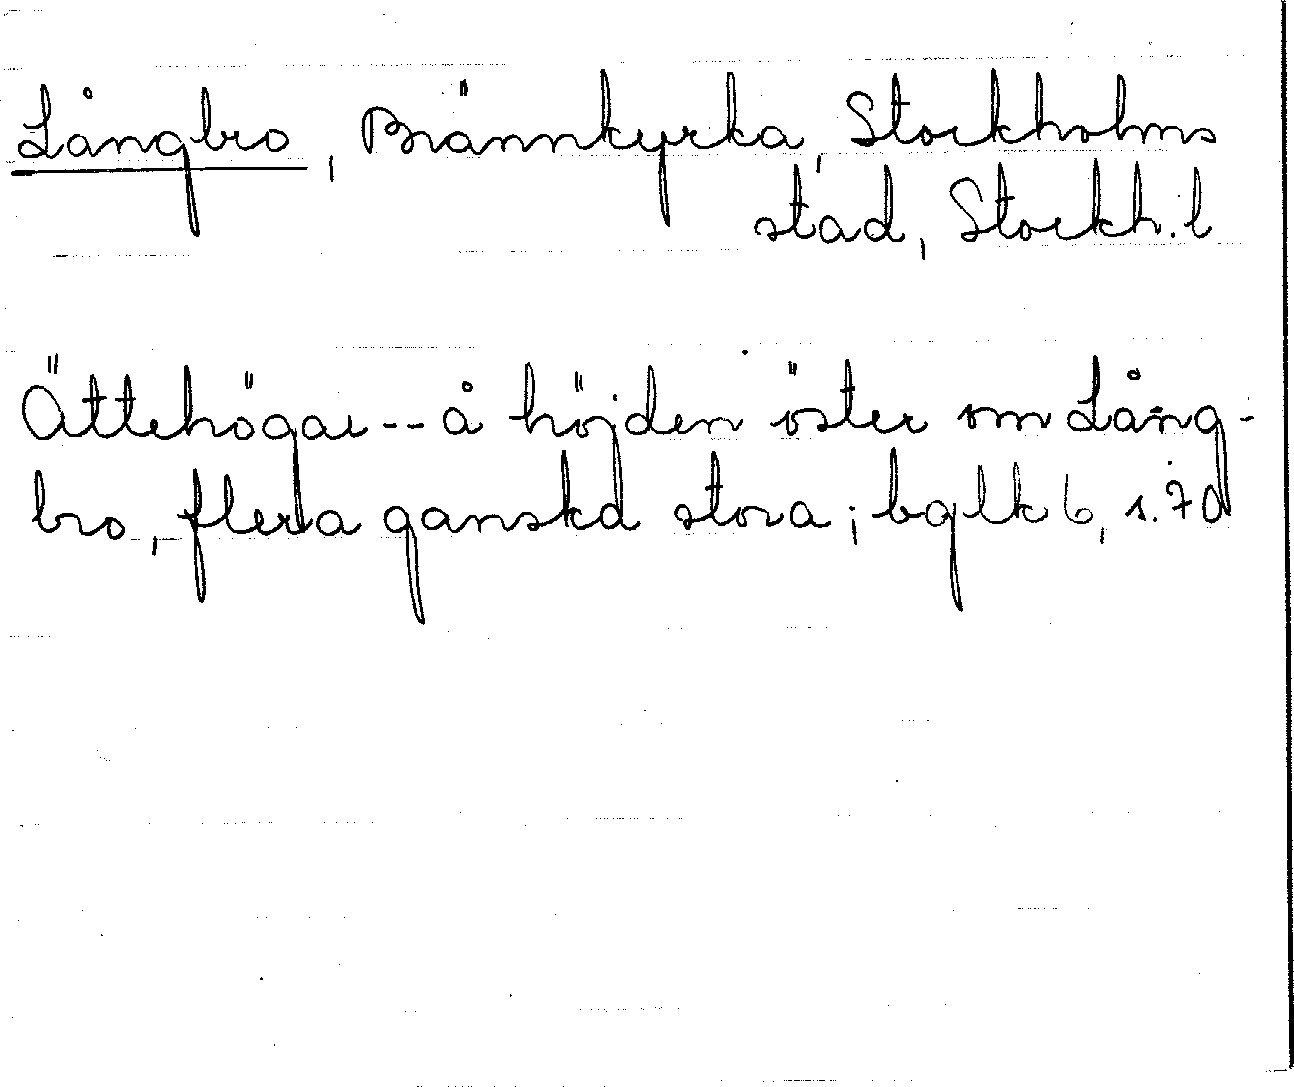 Långbro, Brännkyrka, Stockholms
stad, Stockh. l
Ättehögar -- å höjden öster om Lång-
bro, flera ganska stora; bglk 6, s. 70